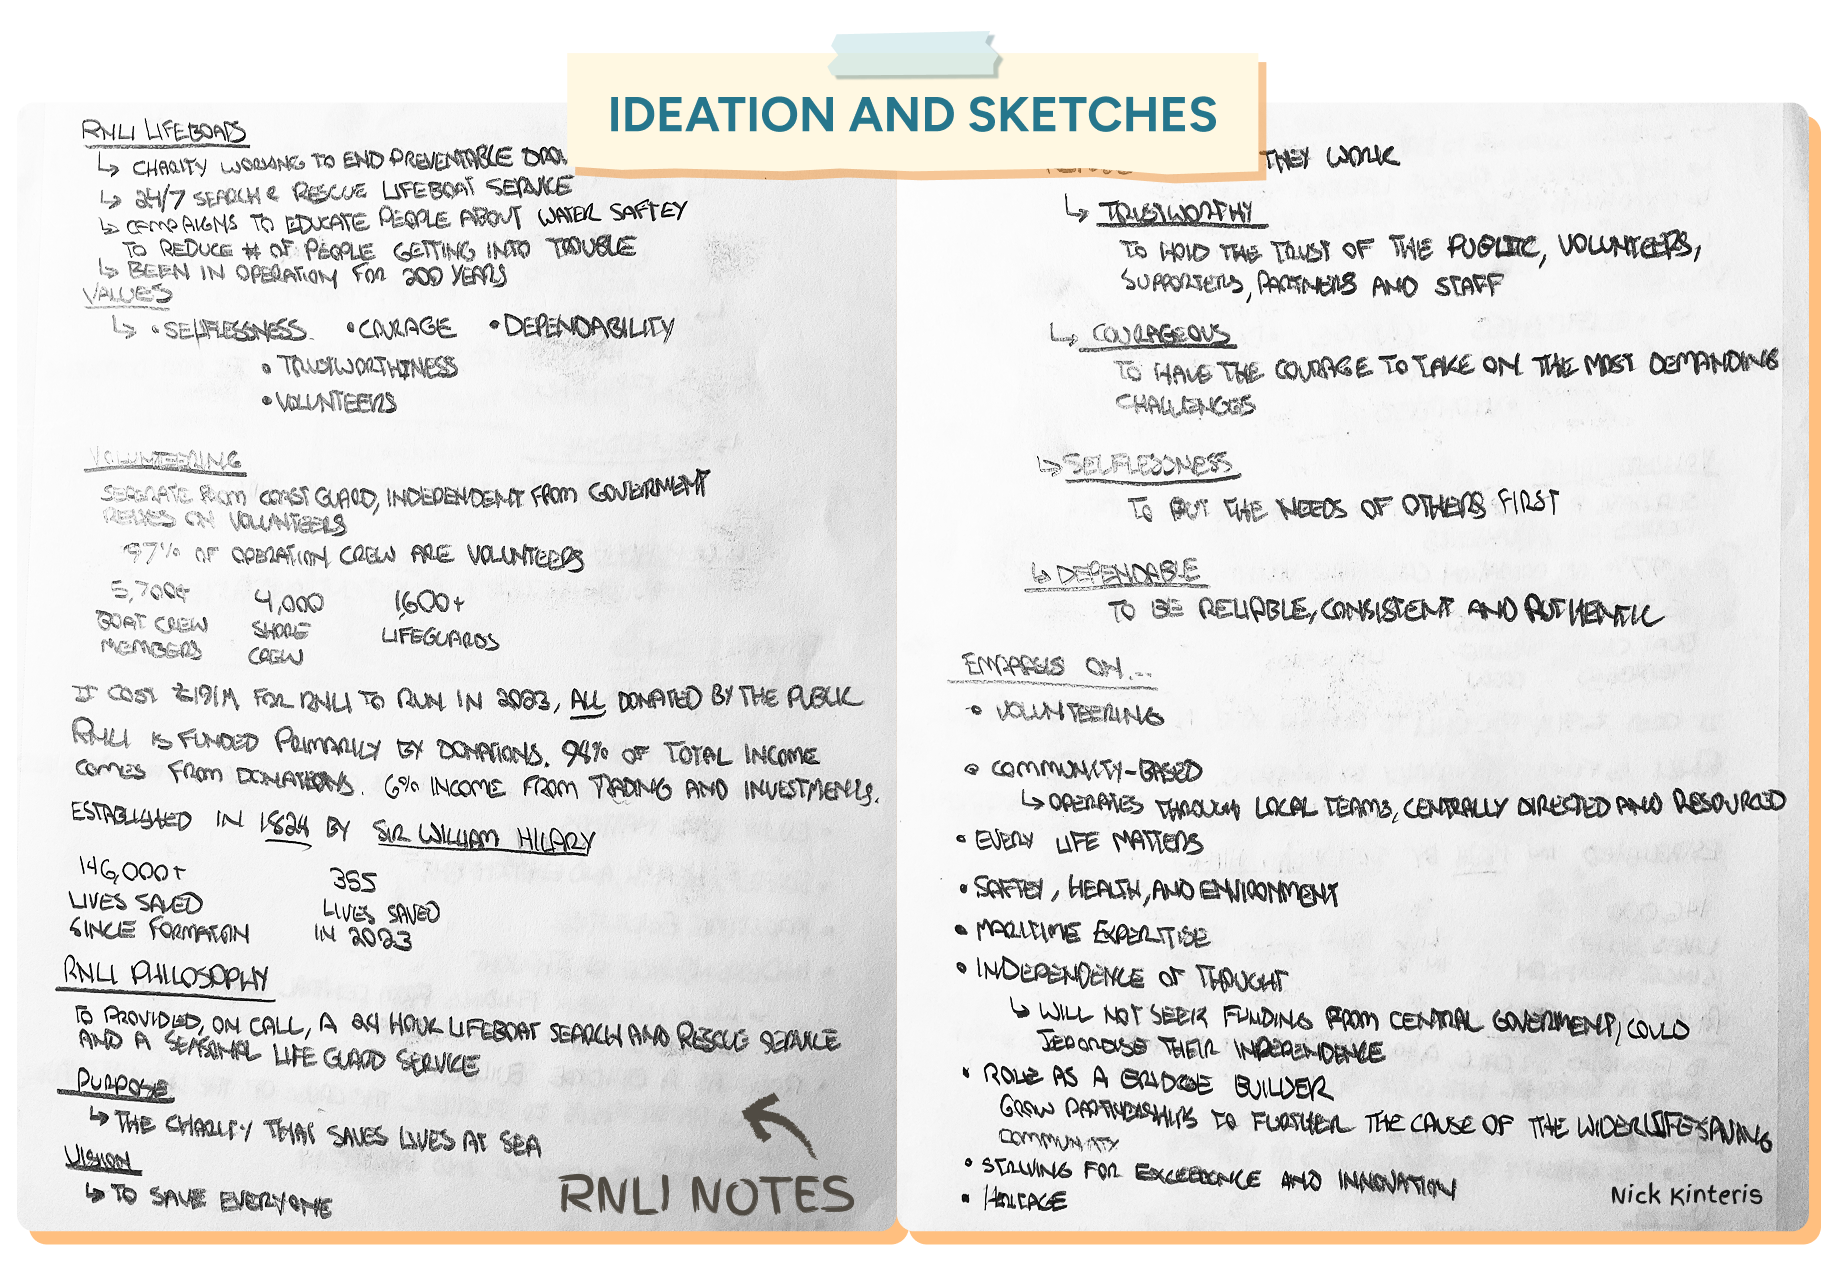 IDEATION AND SKETCHES
RNLI LIFEBOATS
↳ CHARITY WORKING TO END PREVENTABLE
↳ 24/7 SEARCH & RESCUE LIFEBOAT SERVICE
↳ CAMPAIGNS TO EDUCATE PEOPLE ABOUT WATER SAFTEY
TO REDUCE # OF PEOPLE GETTING INTO TROUBLE
↳ BEEN IN OPERATION FOR 200 YEARS
VALUES
↳ • SELFLESSNESS • COURAGE • DEPENDABILITY
• TRUSTWORTHINESS
• VOLUNTEERS
VOLUNTEERING
SEPERATE FROM COAST GUARD, INDEPENDENT FROM GOVERMENT
RELIES ON VOLUNTEERS
97% OF OPERATION CREW ARE VOLUNTEERS
5,700+ 4,000 1,600+
BOAT CREW SHORE LIFEGUARDS
MEMBERS CREW
IT COST £191M FOR RNLI TO RUN IN 2023, ALL DONATED BY THE PUBLIC
RNLI IS FUNDED PRIMARILY BY DONATIONS. 94% OF TOTAL INCOME
COMES FROM DONATIONS. 6% INCOME FROM TRADING AND INVESTMENTS.
ESTABLISHED IN 1824 BY SIR WILLIAM HILARY
146,000+ 355
LIVES SAVED LIVES SAVED
SINCE FORMATION IN 2023
RNLI PHILOSOPHY
TO PROVIDED, ON CALL, A 24 HOUR LIFEBOAT SEARCH AND RESCUE SERVICE
AND A SEASONAL LIFE GUARD SERVICE
PURPOSE
↳ THE CHARITY THAT SAVES LIVES AT SEA
VISION
↳ TO SAVE EVERYONE
RNLI NOTES
THEY WORK
↳ TRUSTWORTHY
TO HOLD THE TRUST OF THE PUBLIC, VOLUNTEERS,
SUPPORTERS, PARTNERS AND STAFF
↳ COURAGEOUS
TO HAVE THE COURAGE TO TAKE ON THE MOST DEMANDING
CHALLENGES
↳ SELFLESSNESS
TO PUT THE NEEDS OF OTHERS FIRST
↳ DEPENDABLE
TO BE RELIABLE, CONSISTENT AND AUTHENTIC
EMPHASIS ON...
• VOLUNTEERING
• COMMUNITY-BASED
↳ OPERATES THROUGH LOCAL TEAMS, CENTRALLY DIRECTED AND RESOURCED
• EVERY LIFE MATTERS
• SAFTEY, HEALTH, AND ENVIRONMENT
• MARITIME EXPERTISE
• INDEPENDENCE OF THOUGHT
↳ WILL NOT SEEK FUNDING FROM CENTRAL GOVERMENT, COULD
JEPORDISE THEIR INDEPENDENCE
• ROLE AS A BRIDGE BUILDER
GROW PARTNERSHIPS TO FURTHER THE CAUSE OF THE WIDER LIFESAVING
COMMUNITY
• STRIVING FOR EXCEEDENCE AND INNOVATION
• HERITAGE
Nick Kinteris